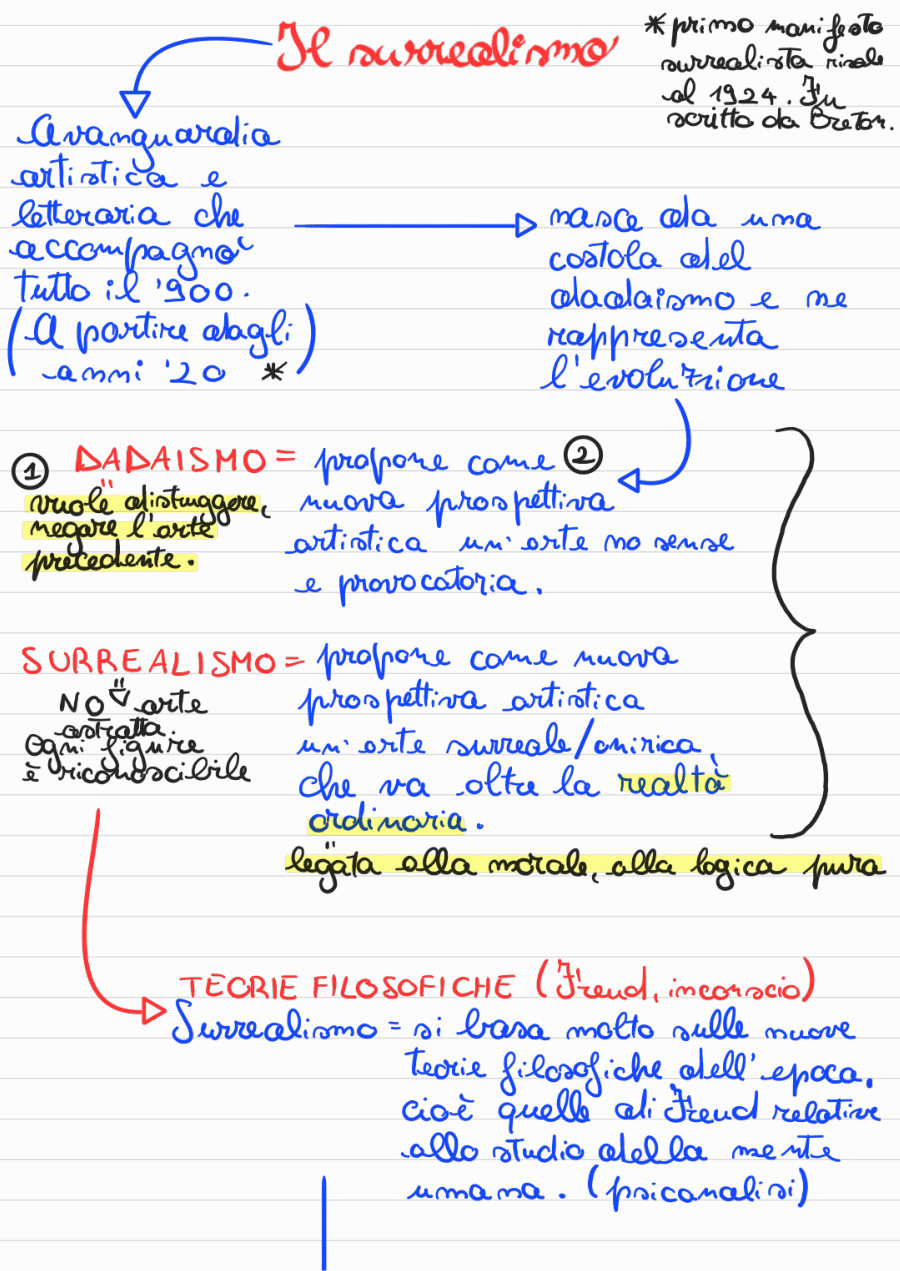 Il surrealismo
* primo manifesto
surrealista risale
al 1924. Fu
scritto da Breton.
Avanguardia
artistica e
letteraria che
accompagnò
tutto il '900.
(A partire dagli
anni '20 *)
nasce da una
costola del
dadaismo e ne
rappresenta
l'evoluzione
1 DADAISMO =
vuole distruggere,
negare l'arte
precedente.
propone come 2
nuova prospettiva
artistica un'arte no sense
e provocatoria.
SURREALISMO =
NO arte
astratta.
Ogni figure
è riconoscibile
propone come nuova
prospettiva artistica
un'arte surreale/onirica,
che va oltre la realtà
ordinaria.
legata alla morale, alla logica pura
TEORIE FILOSOFICHE (Freud, inconscio)
Surrealismo = si basa molto sulle nuove
teorie filosofiche dell'epoca,
cioè quelle di Freud relative
allo studio della mente
umana. (psicanalisi)